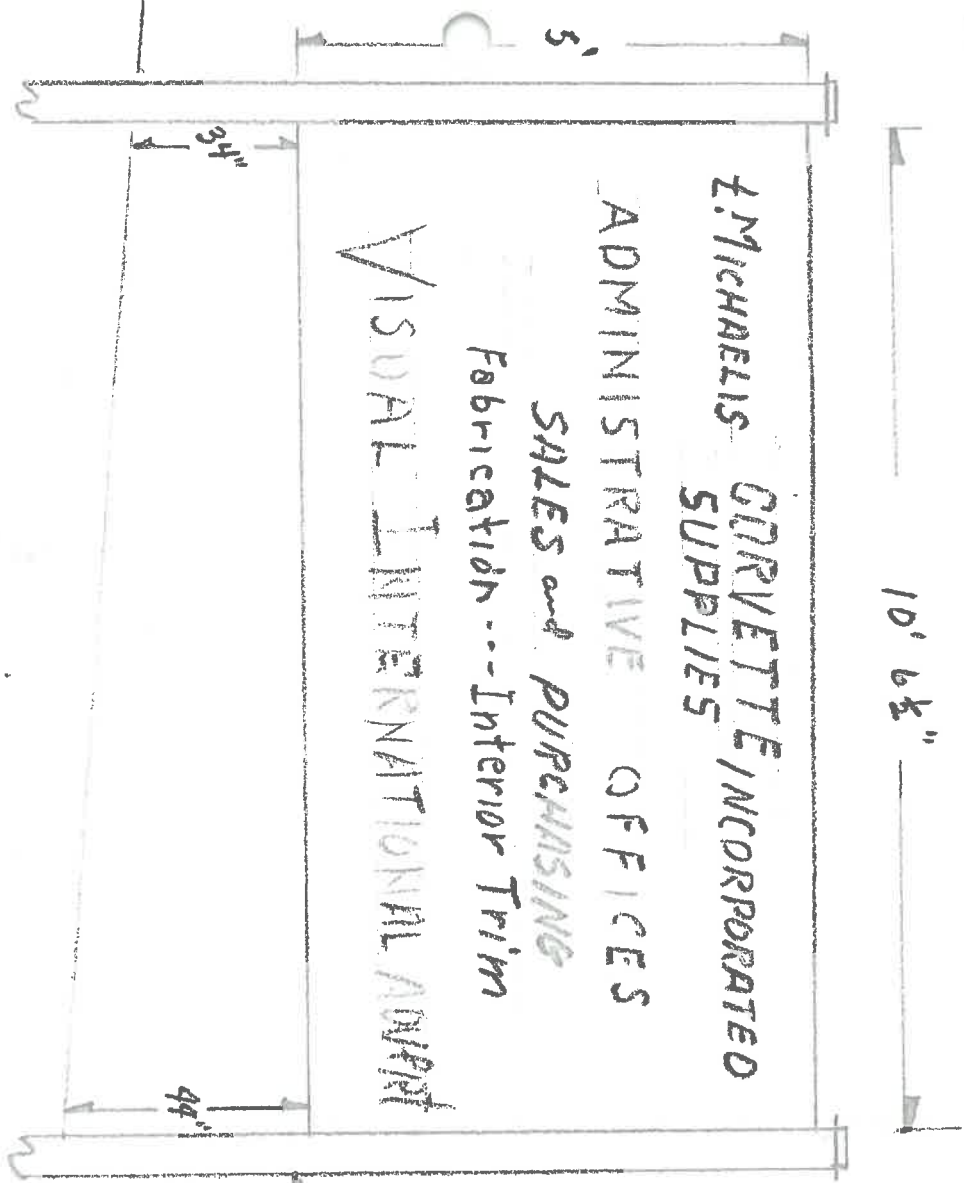 10' 6½"
5'
MICHAELIS CORVETTE INCORPORATED
SUPPLIES
ADMINISTRATIVE OFFICES
SALES and PURCHASING
Fabrication --- Interior Trim
VISUAL INTERNATIONAL
34"
44"